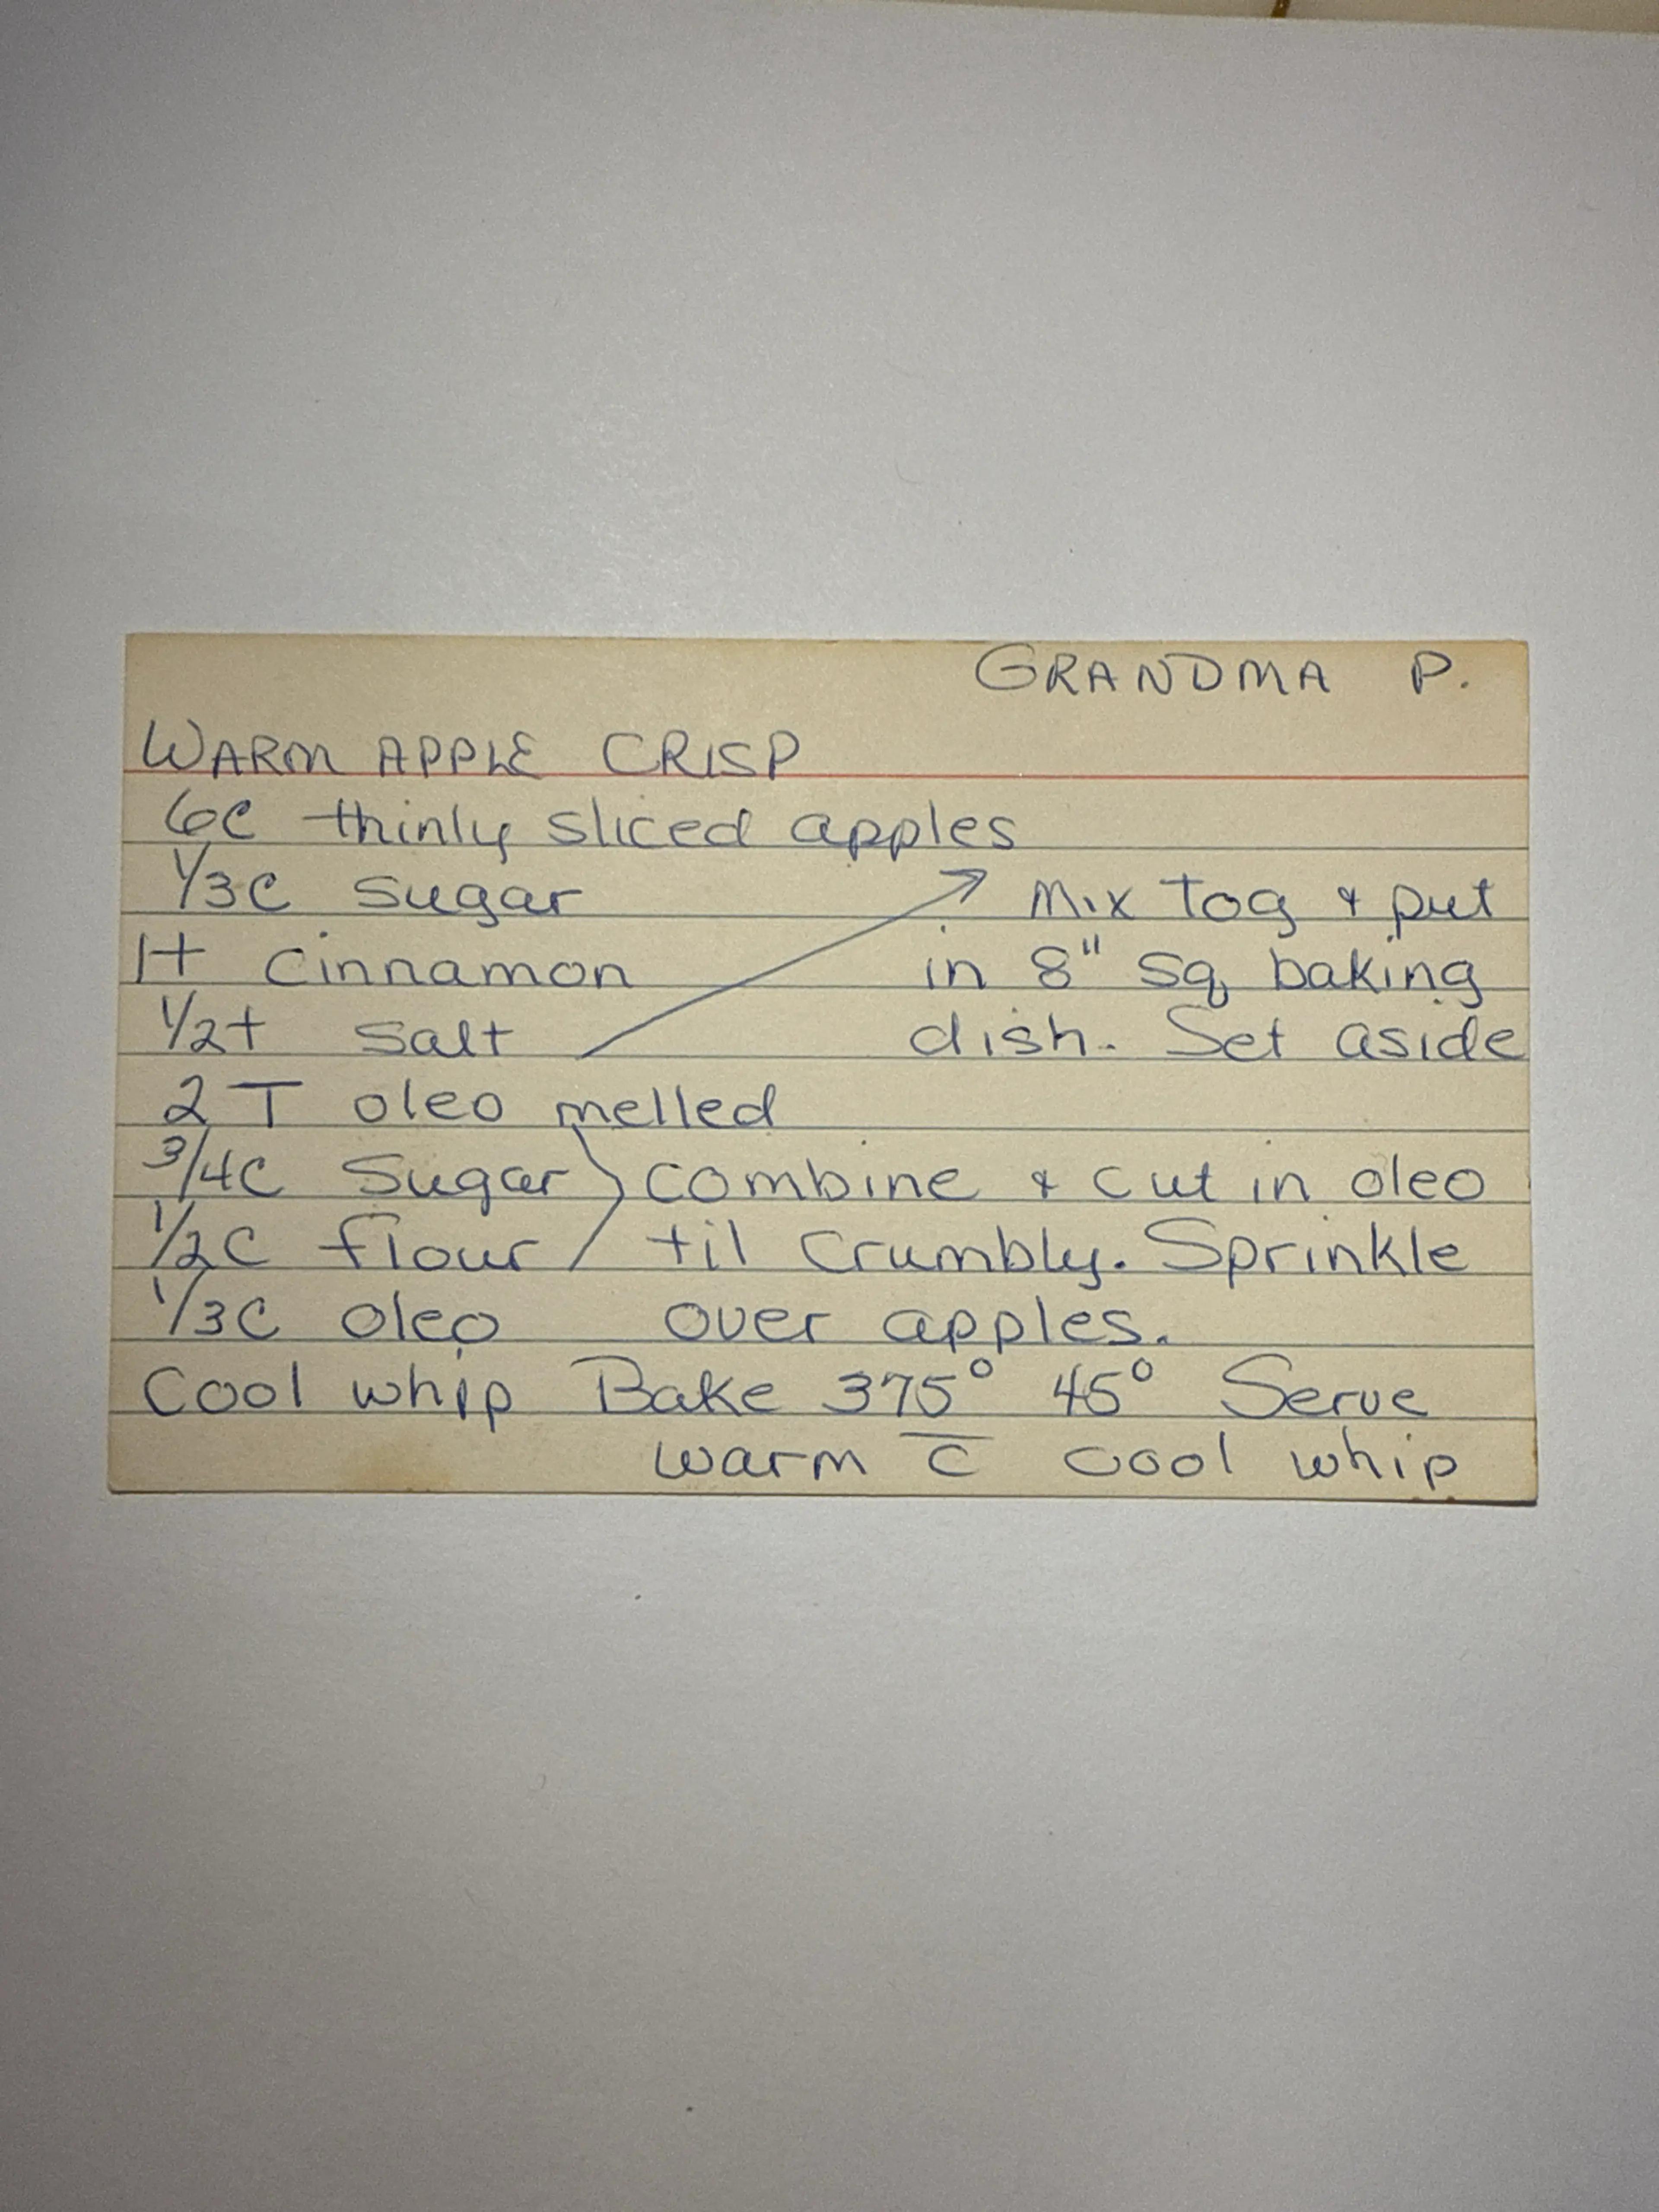 GRANDMA P.
WARM APPLE CRISP
6C thinly sliced apples
1/3C sugar Mix Tog & put
1t cinnamon in 8" sq baking
1/2t salt dish. Set aside
2 T oleo melled
3/4C Sugar combine & cut in oleo
1/2C flour til crumbly. Sprinkle
1/3C oleo over apples.
Cool whip Bake 375° 45° Serve
warm c̅ cool whip